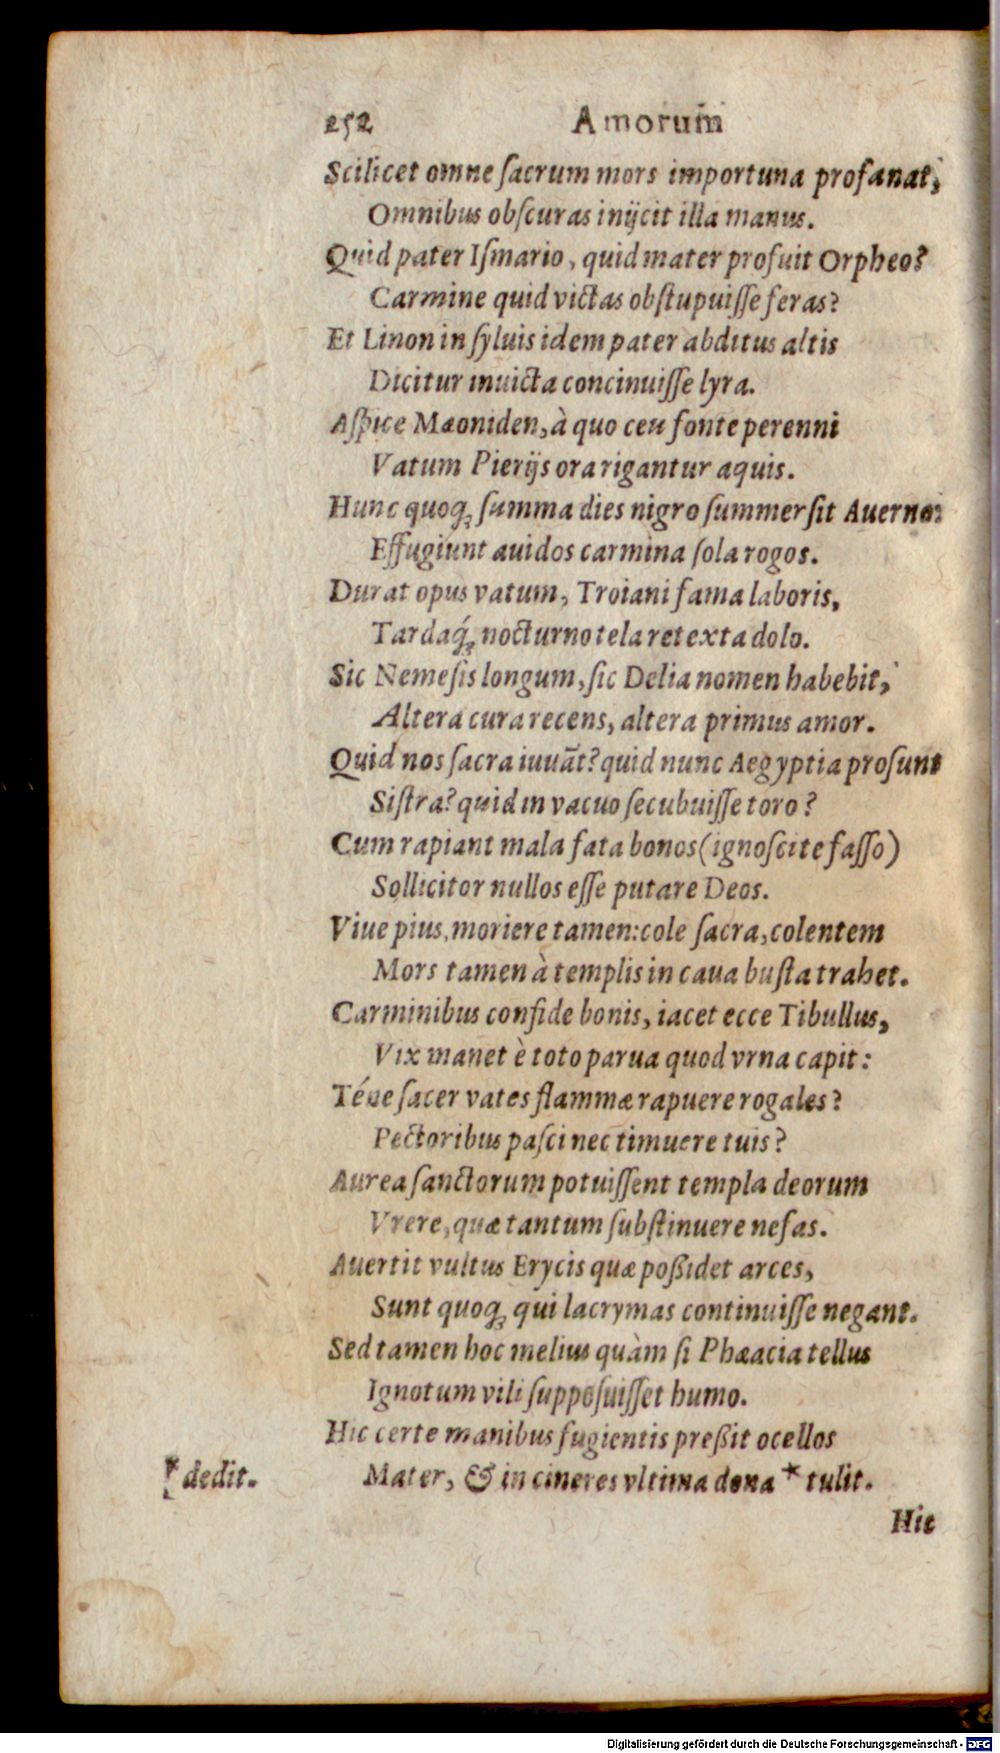 252 Amorum
Scilicet omne ſacrum mors importuna profanat,
Omnibus obſcuras inijcit illa manus.
Quid pater Iſmario, quid mater profuit Orpheo?
Carmine quid victas obſtupuiſſe feras?
Et Linon in ſyluis idem pater abditus altis
Dicitur inuicta concinuiſſe lyra.
Aſpice Mæoniden, à quo ceu fonte perenni
Vatum Pierijs ora rigantur aquis.
Hunc quoq; ſumma dies nigro ſummerſit Auerno:
Effugiunt auidos carmina ſola rogos.
Durat opus vatum, Troiani fama laboris,
Tardaq́; nocturno tela retexta dolo.
Sic Nemeſis longum, ſic Delia nomen habebit,
Altera cura recens, altera primus amor.
Quid nos ſacra iuuāt? quid nunc Aegyptia proſunt
Siſtra? quid in vacuo ſecubuiſſe toro?
Cum rapiant mala fata bonos (ignoſcite faſſo)
Sollicitor nullos eſſe putare Deos.
Viue pius, moriere tamen: cole ſacra, colentem
Mors tamen à templis in caua buſta trahet.
Carminibus confide bonis, iacet ecce Tibullus,
Vix manet è toto parua quod vrna capit:
Téne ſacer vates flammæ rapuere rogales?
Pectoribus paſci nec timuere tuis?
Aurea ſanctorum potuiſſent templa deorum
Vrere, quæ tantum ſubſtinuere nefas.
Auertit vultus Erycis quæ poßidet arces,
Sunt quoq; qui lacrymas continuiſſe negant.
Sed tamen hoc melius quàm ſi Phæacia tellus
Ignotum vili ſuppoſuiſſet humo.
Hic certe manibus fugientis preßit ocellos
* dedit. Mater, & in cineres vltima dona * tulit.
Hic
Digitalisierung gefördert durch die Deutsche Forschungsgemeinschaft - DFG